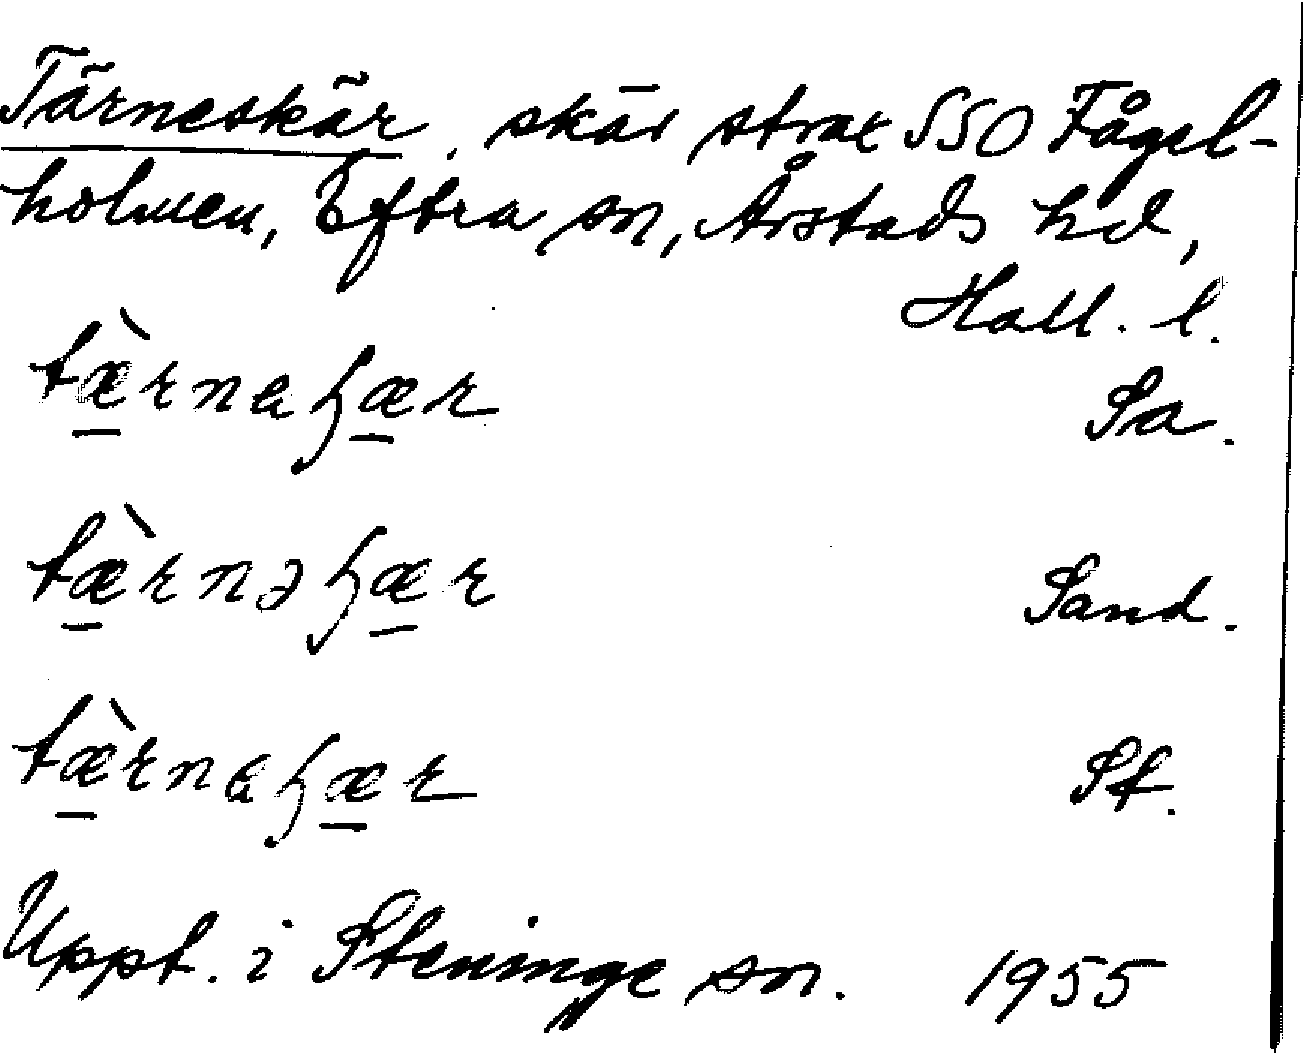 Tärneskär, skär strax SSO Fågel-
holmen, Eftra sn, Årstads hd,
Hall. l.
tæ̀rnaɧær Sa.
tæ̀rnəɧær Sand.
tæ̀rnaɧær Sf.
Uppt. i Steninge sn. 1955